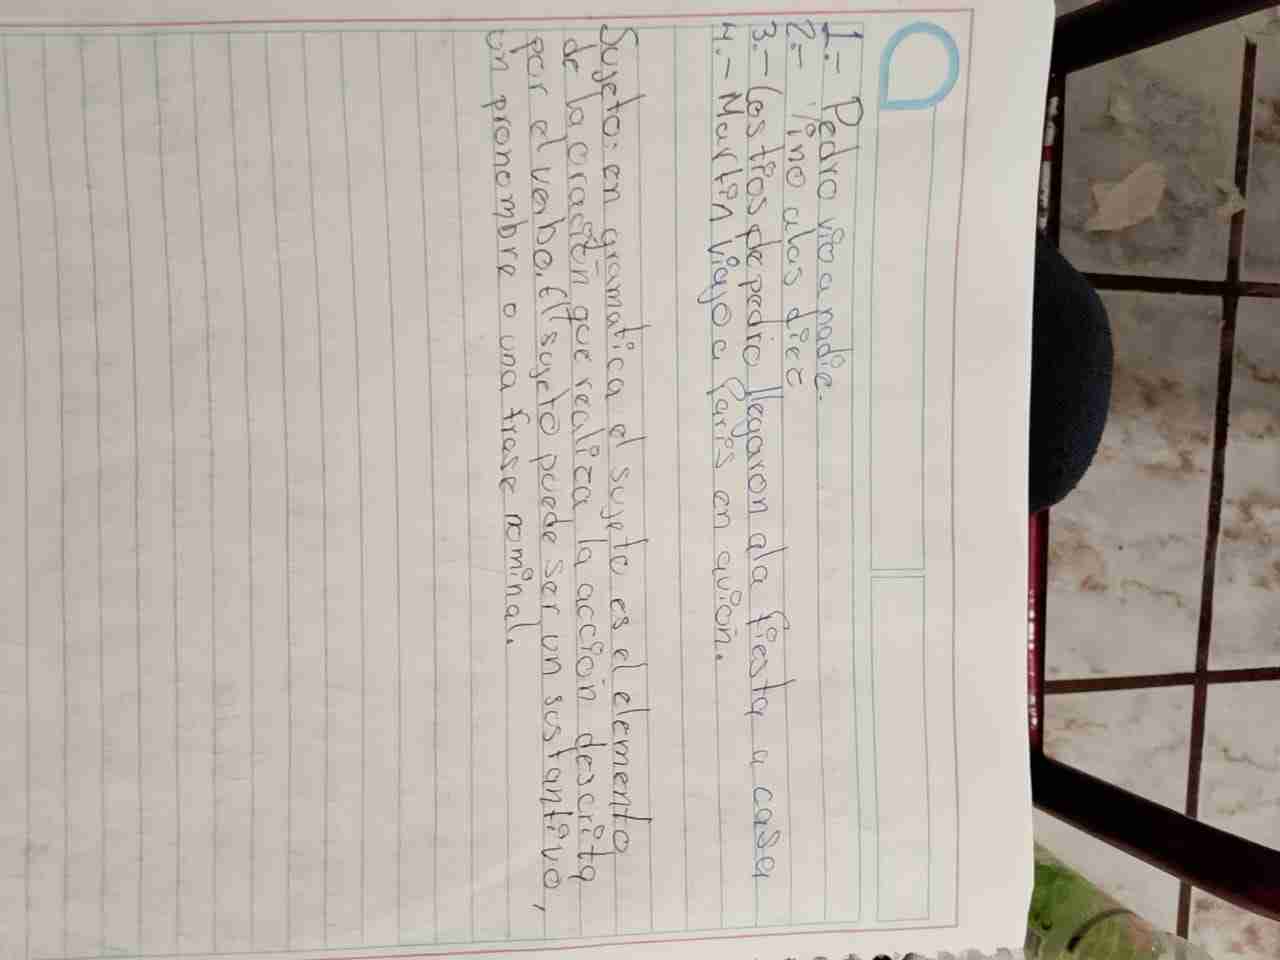 1.- Pedro vio a nadie.
2.- Vino a las diez
3.- Los tios de pedro llegaron ala fiesta a casa
4.- Martin viajo a Paris en avion.
Sujeto: en gramatica el sujeto es el elemento
de la oración que realiza la acción descrita
por el verbo. El sujeto puede ser un sustantivo,
un pronombre o una frase nominal.